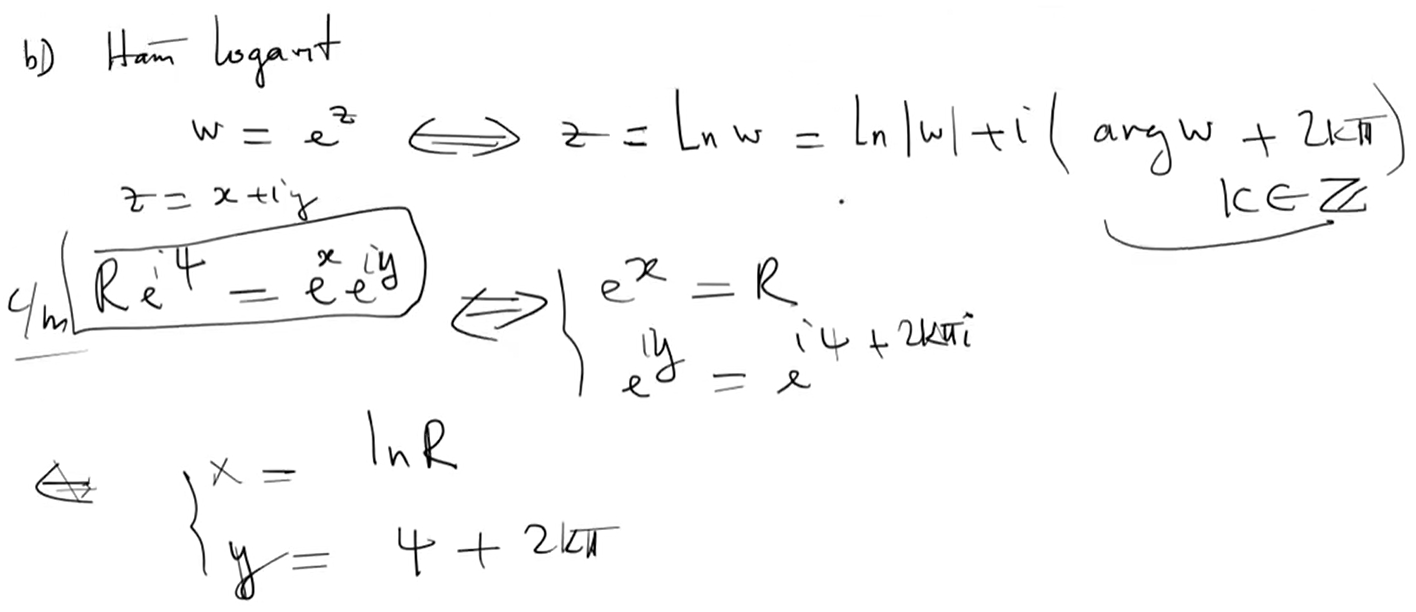 b) Hàm logarit
w = e^z ⟺ z = Ln w = ln|w| + i(arg w + 2kπ)
z = x + iy
k ∈ ℤ
c/m Re^{iψ} = e^x e^{iy} ⟺ { e^x = R
e^{iy} = e^{iψ + 2kπi}
⟺ { x = ln R
y = ψ + 2kπ